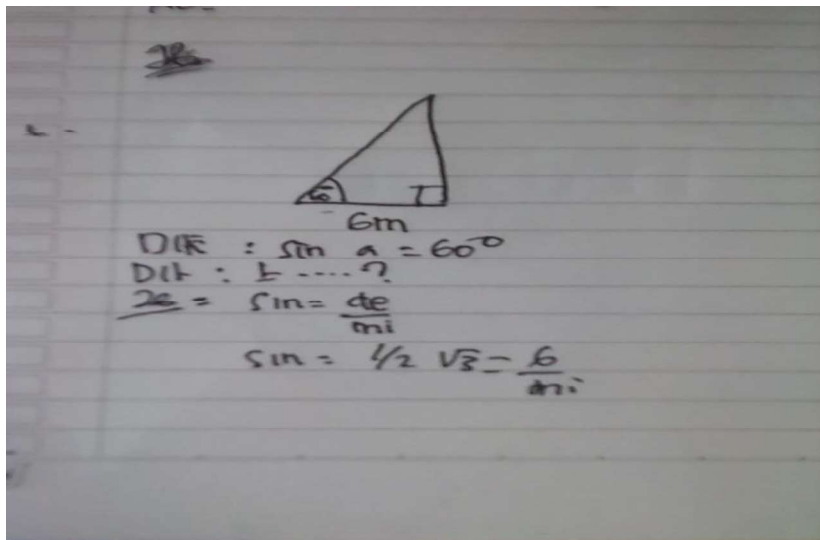 60
6m
Dik : sin a = 60°
Dit : t .....?
= sin = de
mi
sin = 1/2 √3 = 6
mi